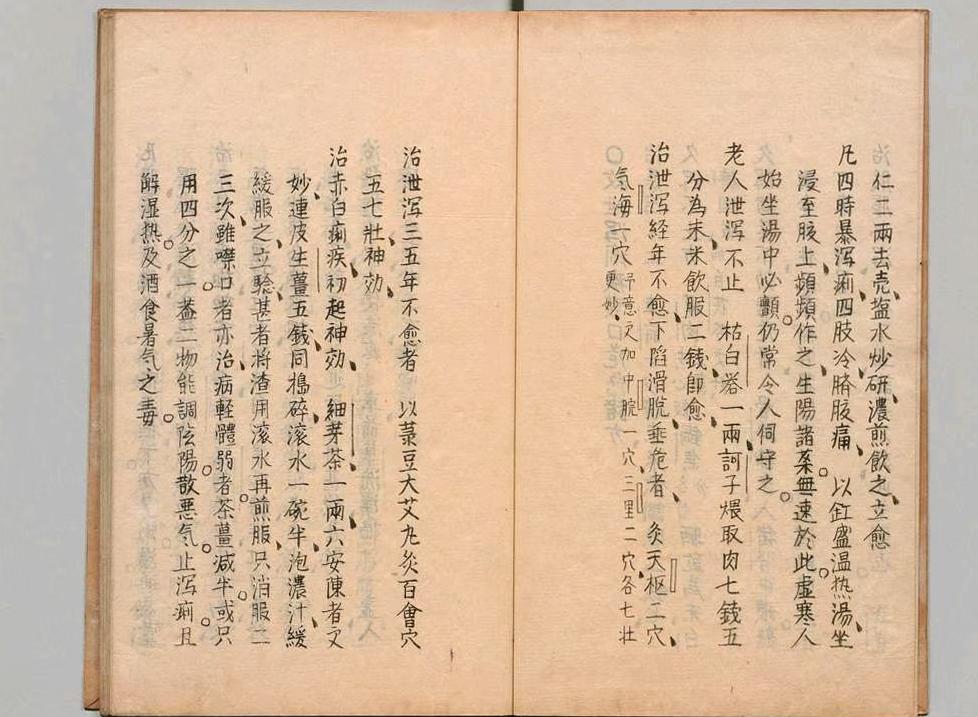 仁二兩去壳盐水炒研濃煎飲之立愈
凡四時暴瀉痢四肢冷臍腹痛 以缸盛温热湯坐
浸至腹上頻頻作之生陽諸藥無速於此虛寒人
始坐湯中必顫仍常令人伺守之
老人泄瀉不止 枯白礬一兩訶子煨取肉七錢五
分為末米飲服二錢即愈
治泄瀉経年不愈下陷滑脫垂危者 灸天枢二穴
氣海一穴 予意又加中脘一穴三里二穴各七壮
更妙
治泄瀉三五年不愈者 以菉豆大艾丸灸百會穴
五七壯神効
治赤白痢疾初起神効 細芽茶一兩六安陳者又
妙連皮生薑五錢同搗碎滚水一碗半泡濃汁緩
緩服之立驗甚者將渣用滚水再煎服只消服二
三次雖噤口者亦治病軽體弱者茶薑減半或只
用四分之一葢二物能調陰陽散悪气止瀉痢且
解湿热及酒食暑气之毒